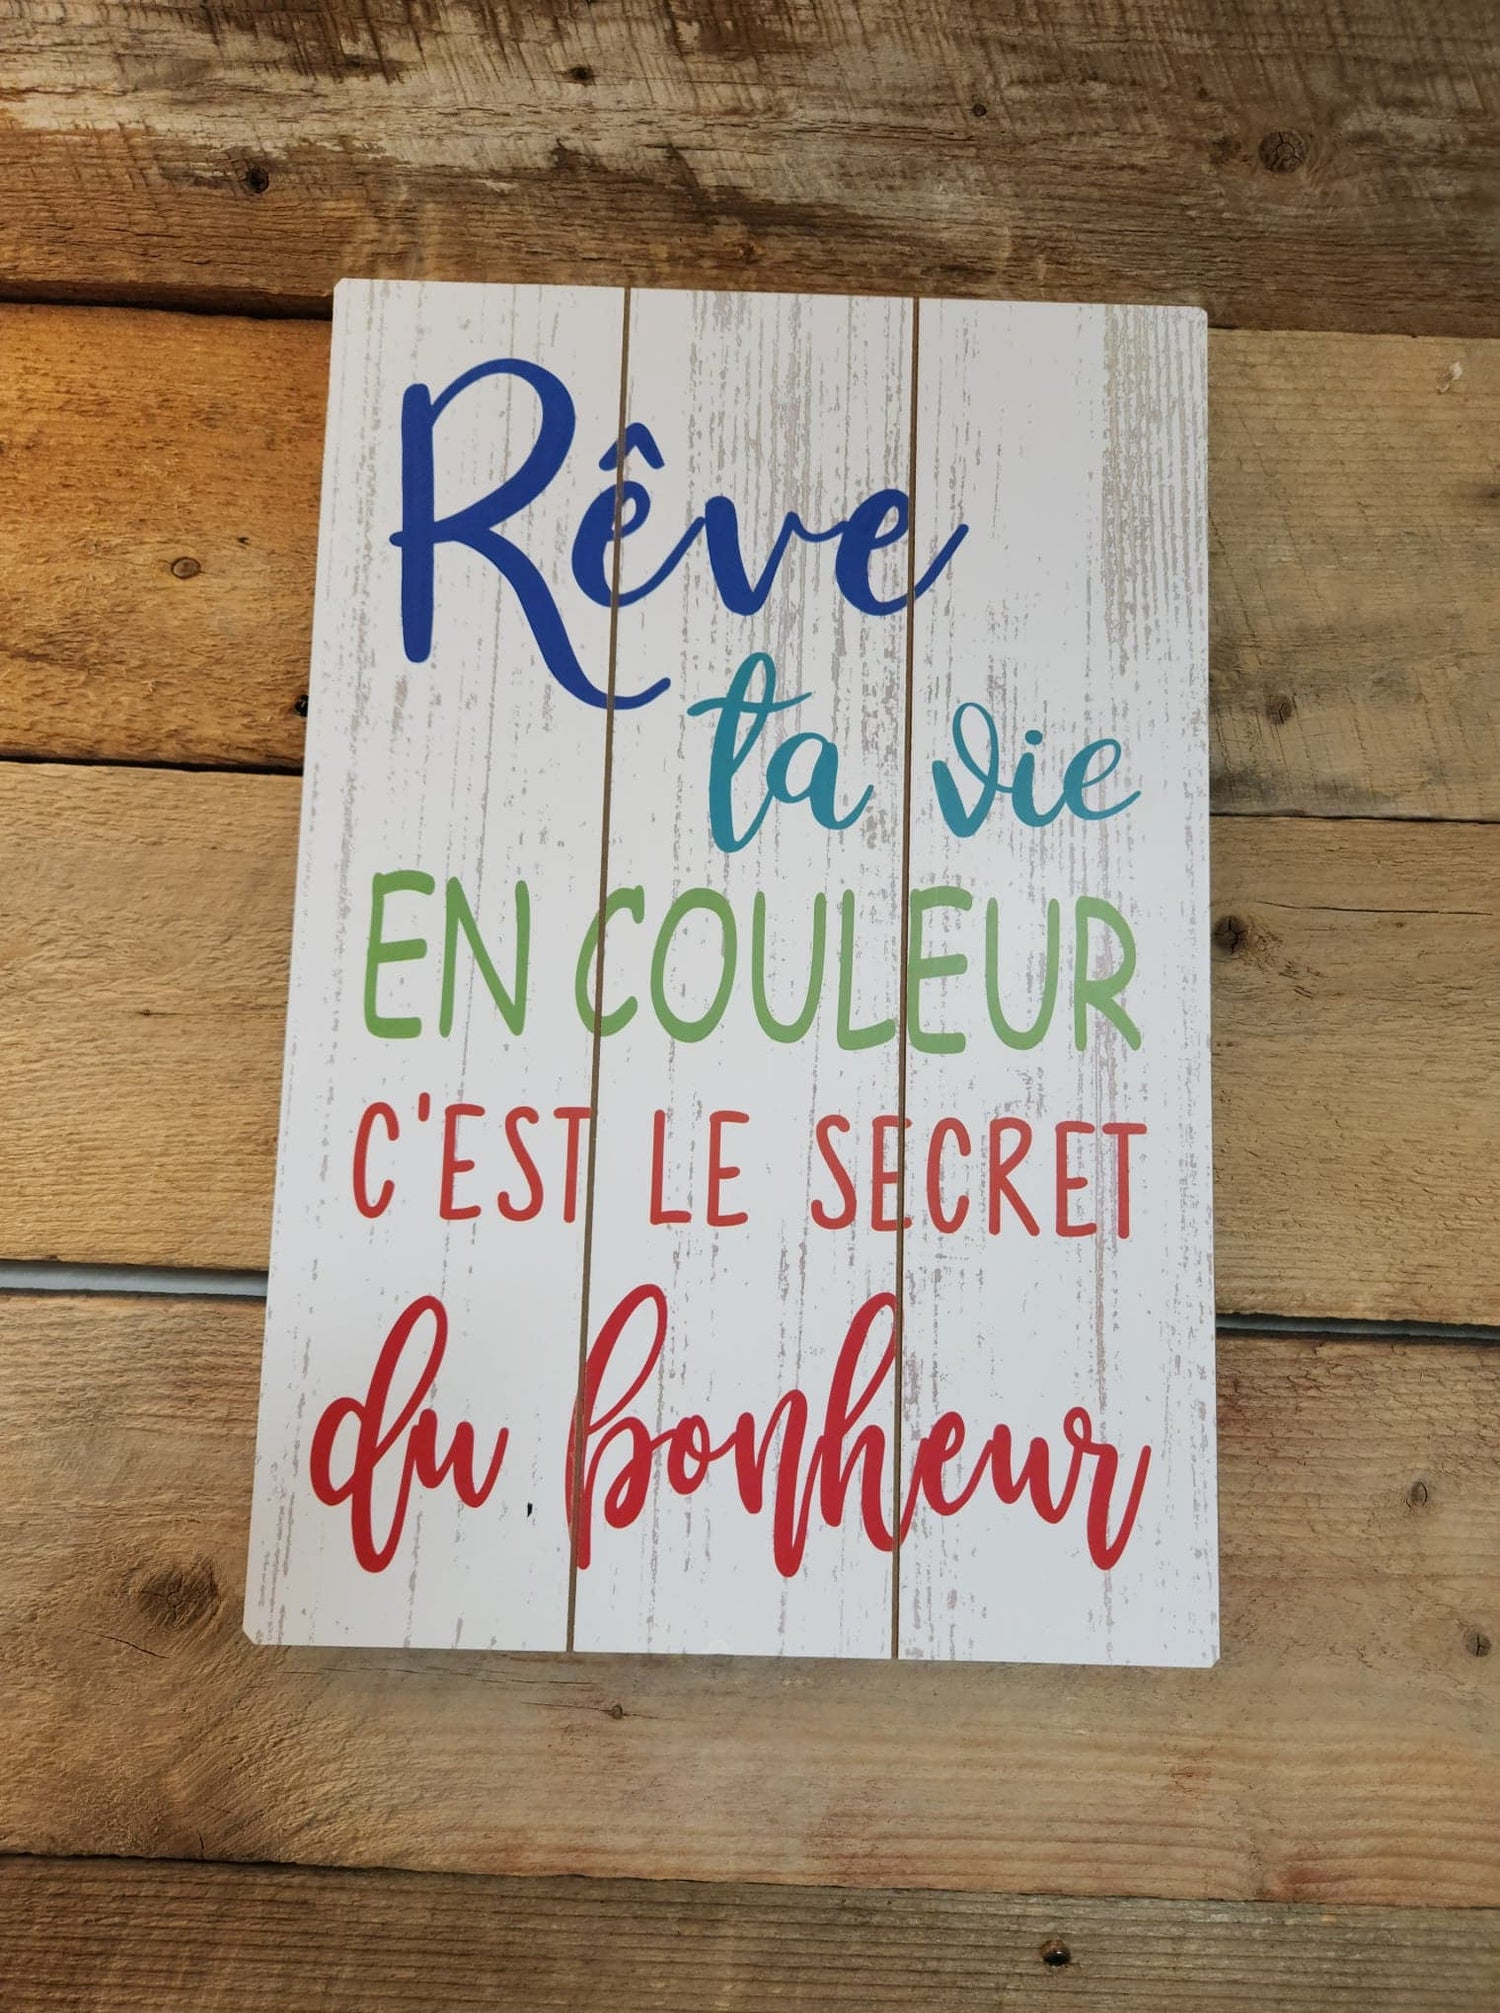 Rêve
ta vie
EN COULEUR
C'EST LE SECRET
du bonheur